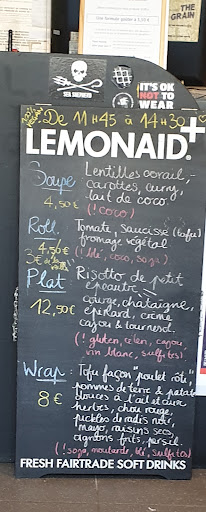 THE
GRAIN
SEA SHEPHERD
IT'S OK
NOT TO
WEAR
100%
VEGAN
De 11H45 à 14H30
LEMONAID+
Soupe Lentilles corail,
carottes, curry,
lait de coco
4,50€ (! coco)
Roll Tomate, saucisse (tofu)
fromage végétal
4,50€ (! blé, coco, soja)
3€
Plat Risotto de petit
épeautre,
courge, châtaigne,
12,50€ épinard, crème
cajou & tournesol.
(! gluten, céleri, cajou,
vin blanc, sulfites)
Wrap Tofu façon "poulet rôti",
8€ pommes de terre & patate
douces à l'ail et aux
herbes, chou rouge,
pickles de radis noir,
mayo, raisins secs,
oignons frits, persil.
(! soja, moutarde, blé, sulfites)
FRESH FAIRTRADE SOFT DRINKS